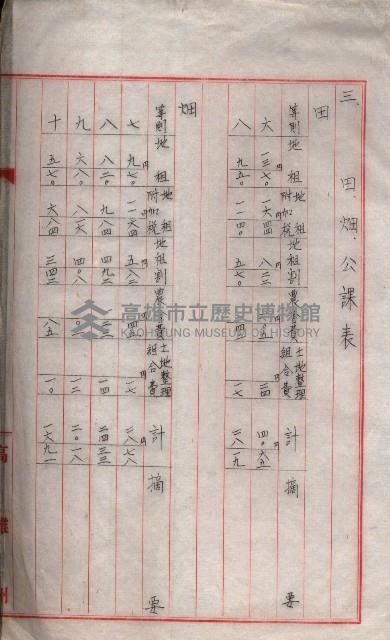 三、田、畑、公課表
田
等則 地租 地租附加税 地租割 農 費 土地整理組合費 計 摘要
六 一三七〇 一六四四 八二二 二〇五 二四 四〇六五
八 九五〇 一一四〇 五七〇 一四二 一七 二八一九
畑
等則 地租 地租附加税 地租割 農 費 土地整理組合費 計 摘要
七 九七〇 一一六四 五八二 一四五 一七 二八七八
八 八二〇 九八四 四九二 一二三 一四 二四三三
九 六八〇 八一六 四〇八 一〇二 一二 二〇一八
十 五七〇 六八四 三四二 八五 一〇 一六九一
高雄州
高雄市立歷史博物館
KAOHSIUNG MUSEUM OF HISTORY